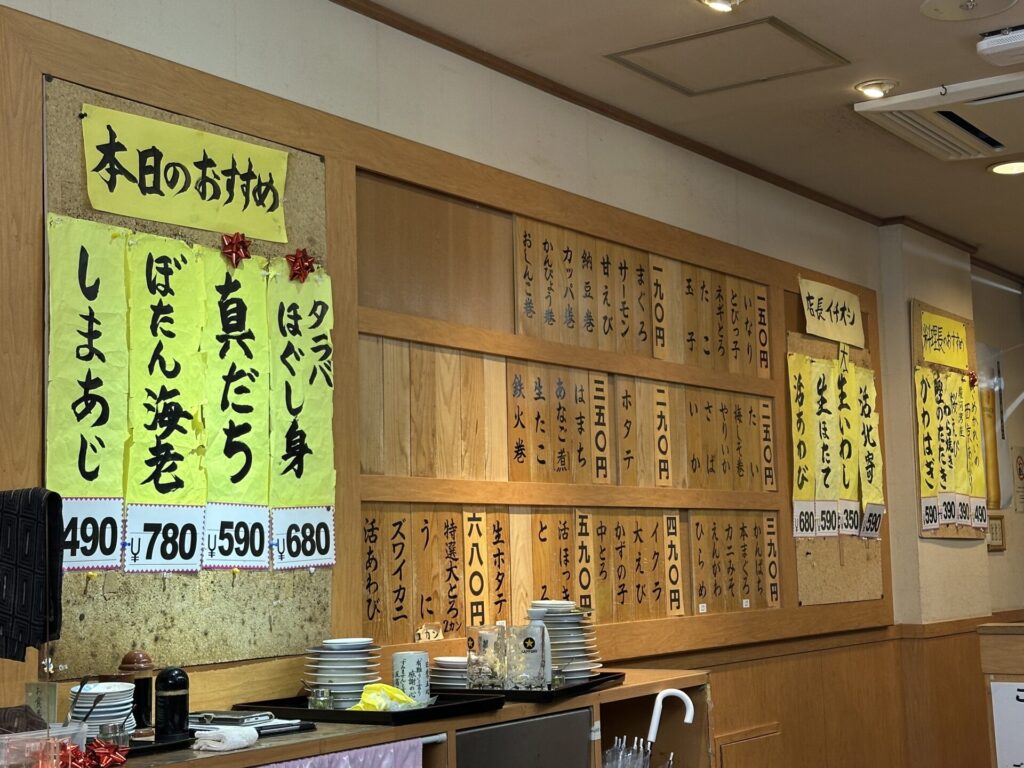 本日のおすすめ
タラバ
ほぐし身
¥680
真だち
¥590
ぼたん海老
¥780
しまあじ
490
一五〇円
いなり
とびっ子
ネギとろ
たこ
玉子
一九〇円
まぐろ
サーモン
甘えび
納豆巻
カッパ巻
かんぴょう巻
おしんこ巻
二五〇円
たい
梅しそ巻
やりいか
さば
いか
二九〇円
ホタテ
三五〇円
はまち
あなご煮
生たこ
鉄火巻
三九〇円
かんぱち
本まぐろ
カニみそ
えんがわ
ひらめ
四九〇円
イクラ
大えび
かずの子
中とろ
五九〇円
活ほっき
とろ
六八〇円
生ホタテ
特選大とろ
2カン
うに
ズワイカニ
活あわび
1カン
店長イチオシ
活北寄
590
生いわし
¥350
生ほたて
¥590
活あわび
¥680
料理長のおすすめ
490
390
390
かわはぎ
590
感謝の心